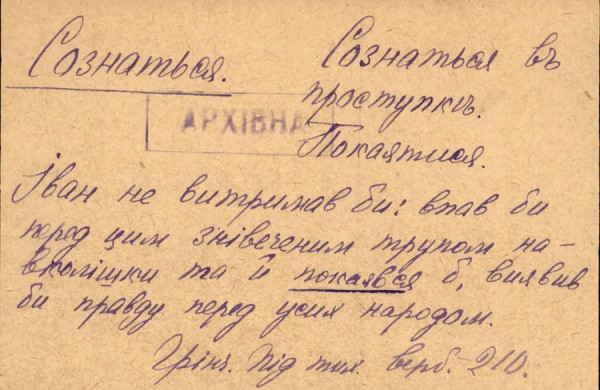 Сознаться.
Сознаться въ
проступкѣ.
АРХІВНА
Покаятися.
Іван не витримав би: впав би
перед цим знівеченим трупом на-
вколішки та й покаявся б, виявив
би правду перед усим народом.
Грінч. Під тих. верб. 210.